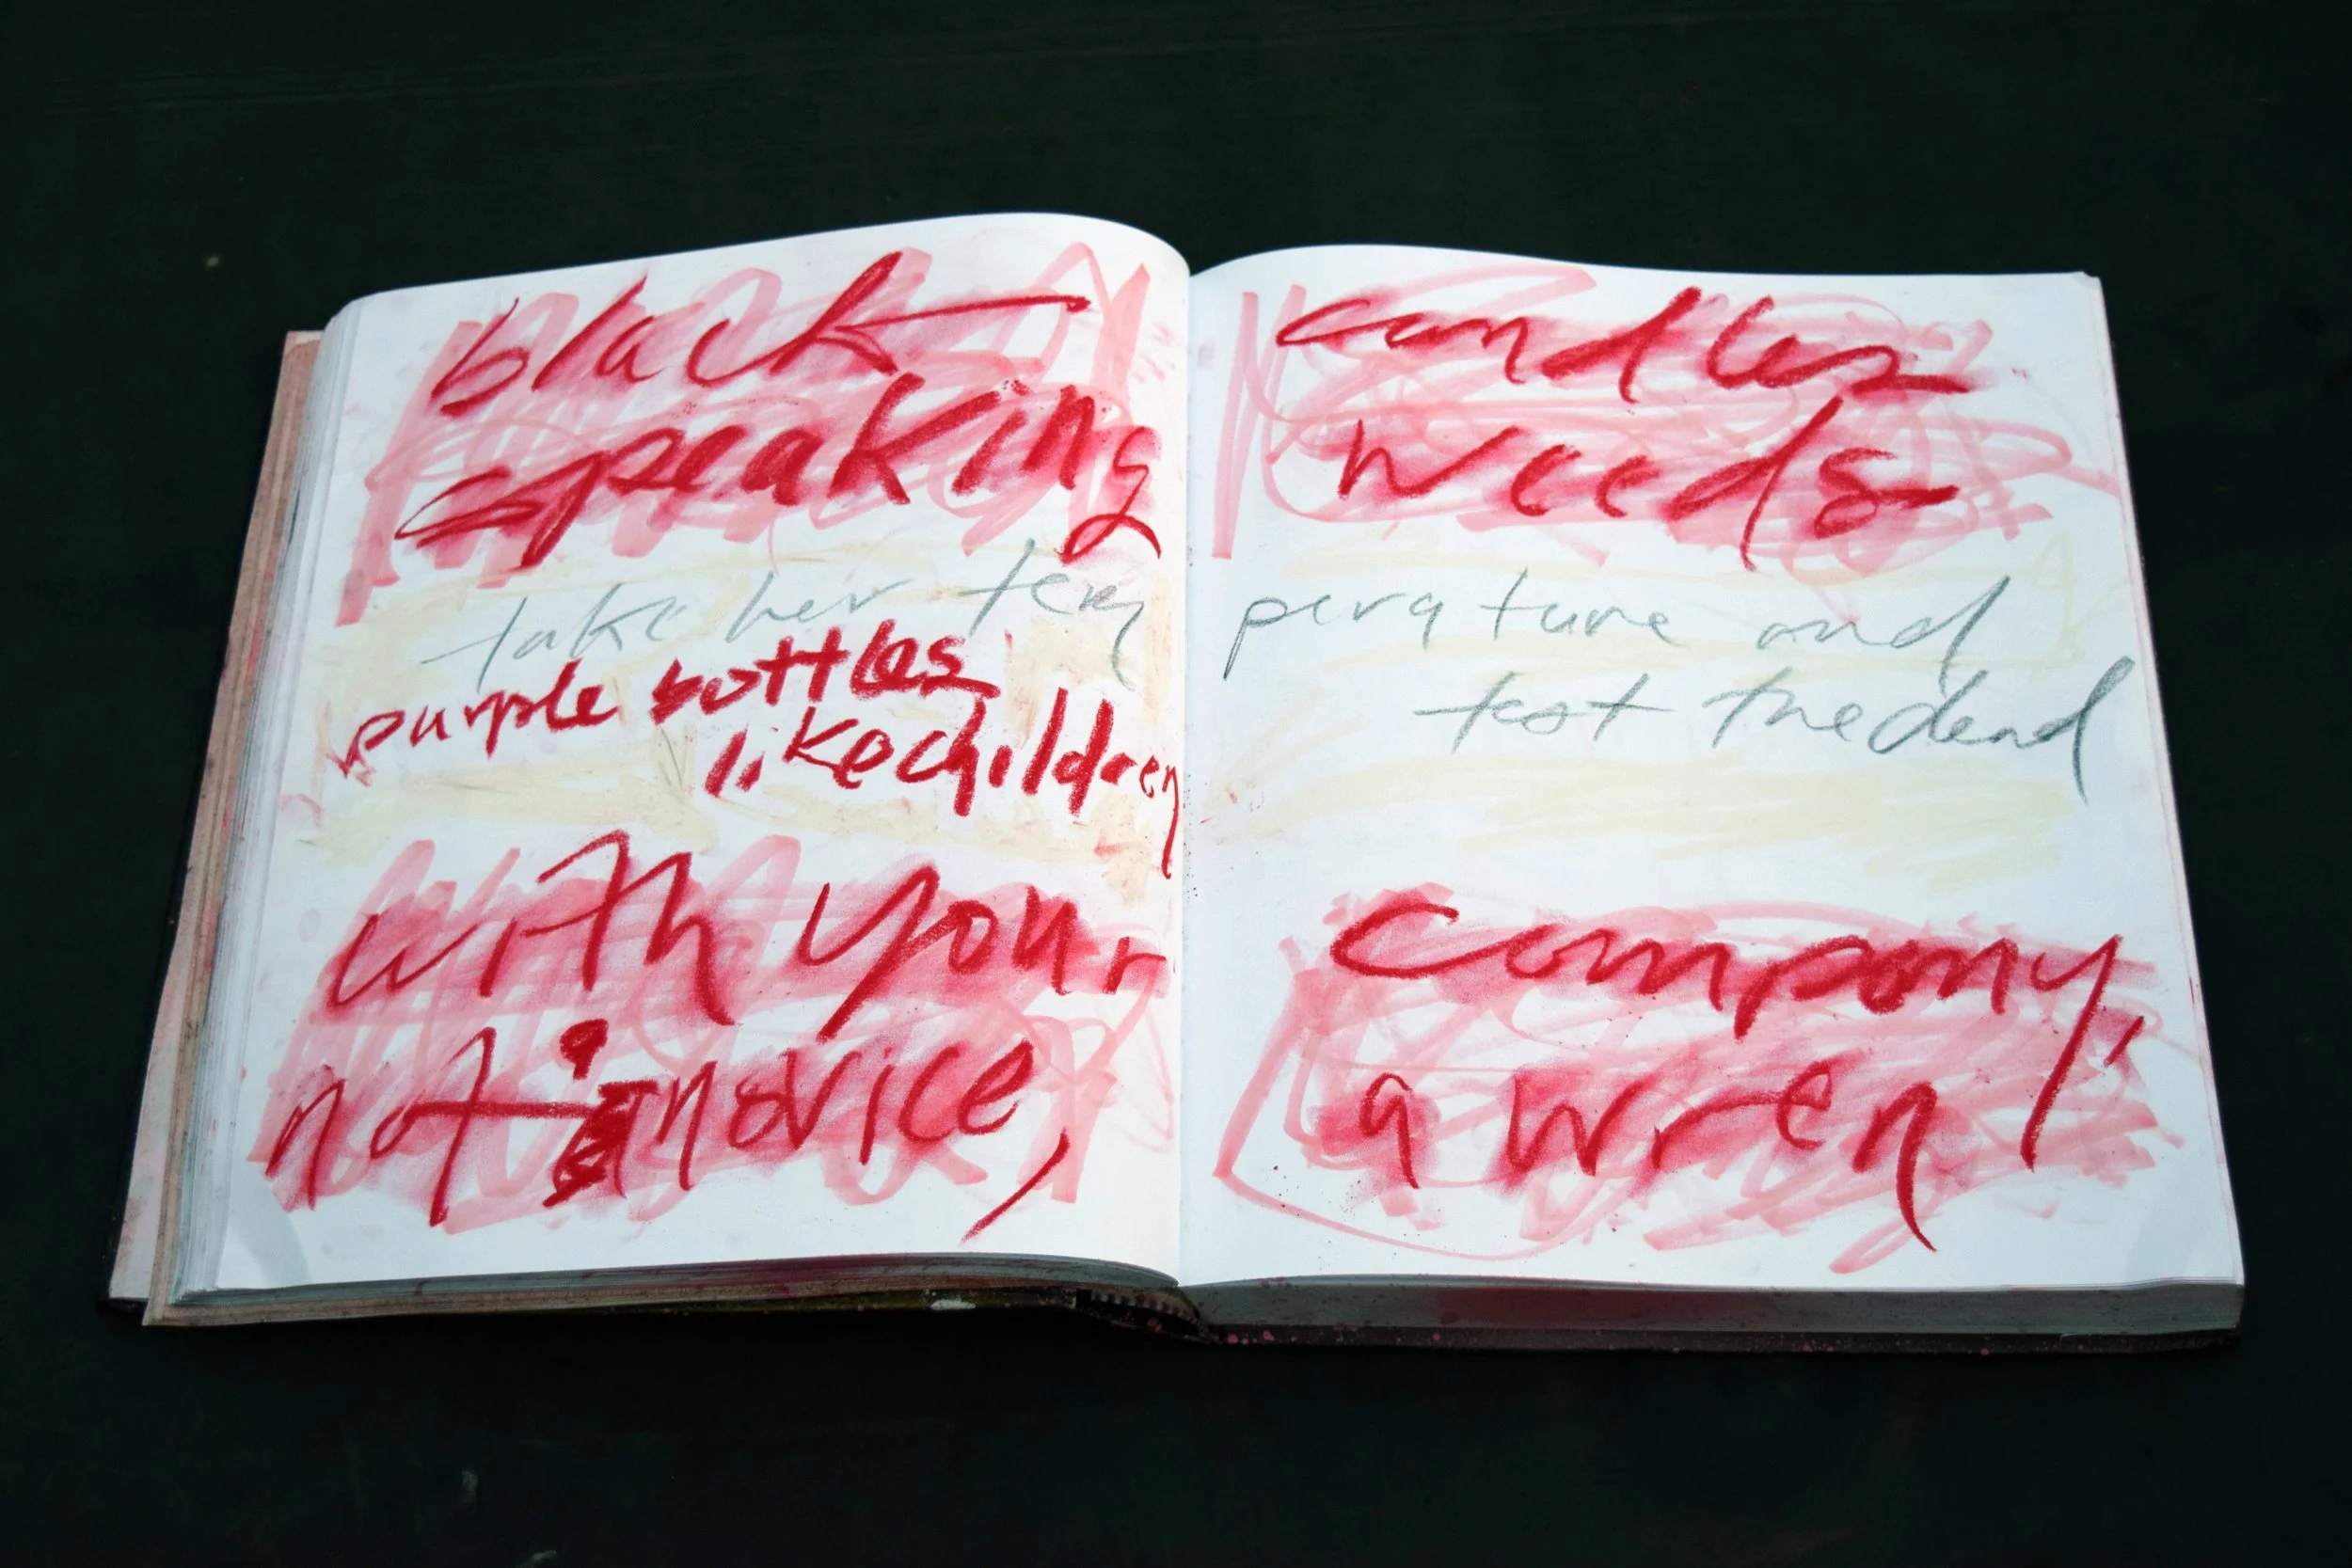 black
speaking
take her tem
purple bottles
like children
with your
not a novice,
candles
weeds
perature and
test the dead
company,
a wren